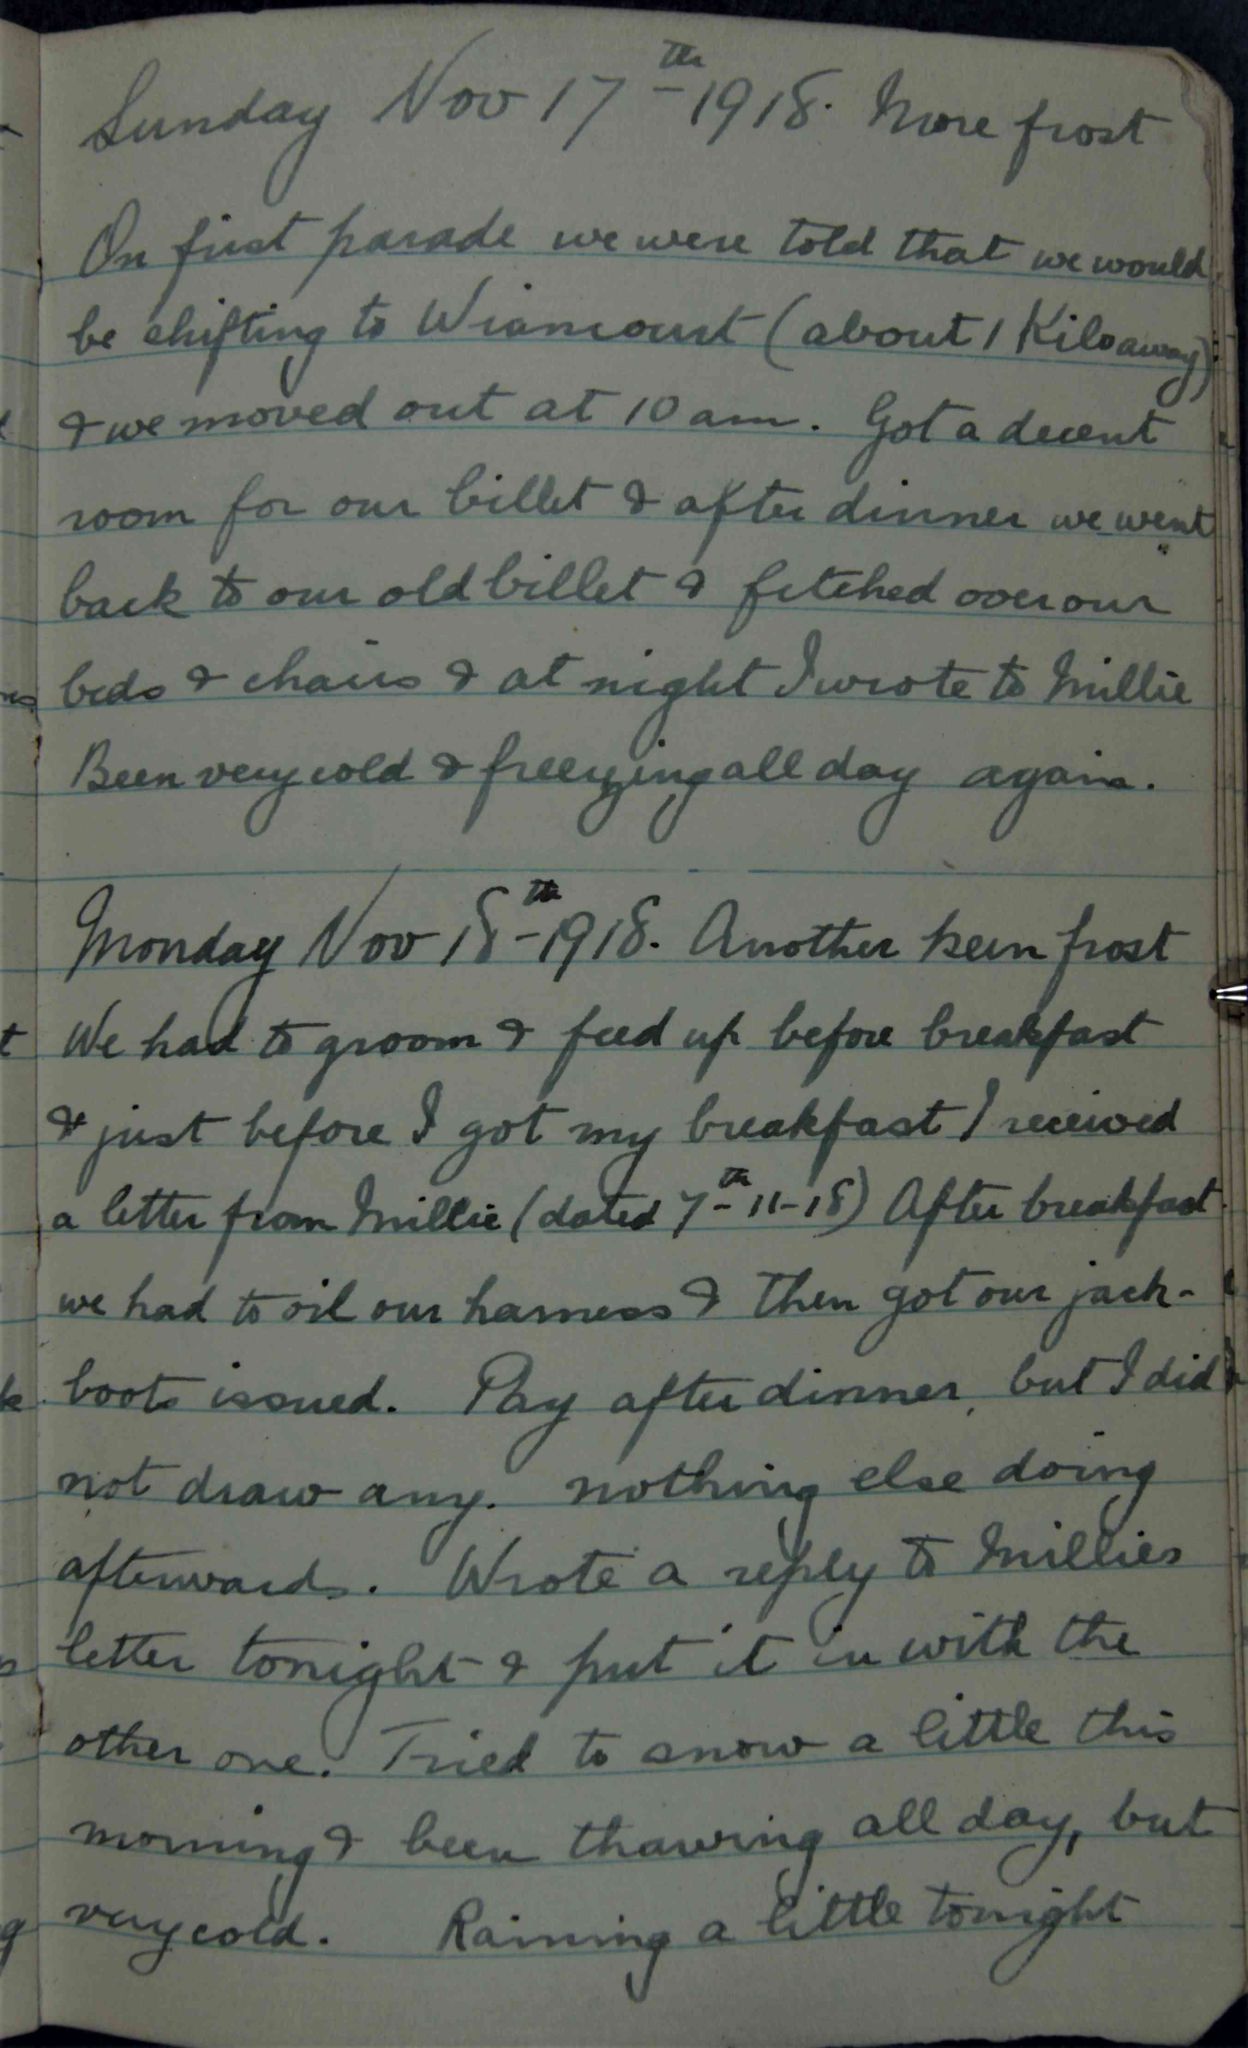 Sunday Nov 17th 1918. More frost
On first parade we were told that we would
be shifting to Wiancourt (about 1 Kilo away)
& we moved out at 10 am. Got a decent
room for our billet & after dinner we went
back to our old billet & fetched over our
beds & chairs & at night I wrote to Millie
Been very cold & freezing all day again.
Monday Nov 18th 1918. Another keen frost
We had to groom & feed up before breakfast
& just before I got my breakfast I received
a letter from Millie (dated 7th-11-18) After breakfast
we had to oil our harness & then got our jack-
boots issued. Pay after dinner, but I did
not draw any. nothing else doing
afterwards. Wrote a reply to Millies
letter tonight & put it in with the
other one. Tried to snow a little this
morning & been thawing all day, but
very cold. Raining a little tonight